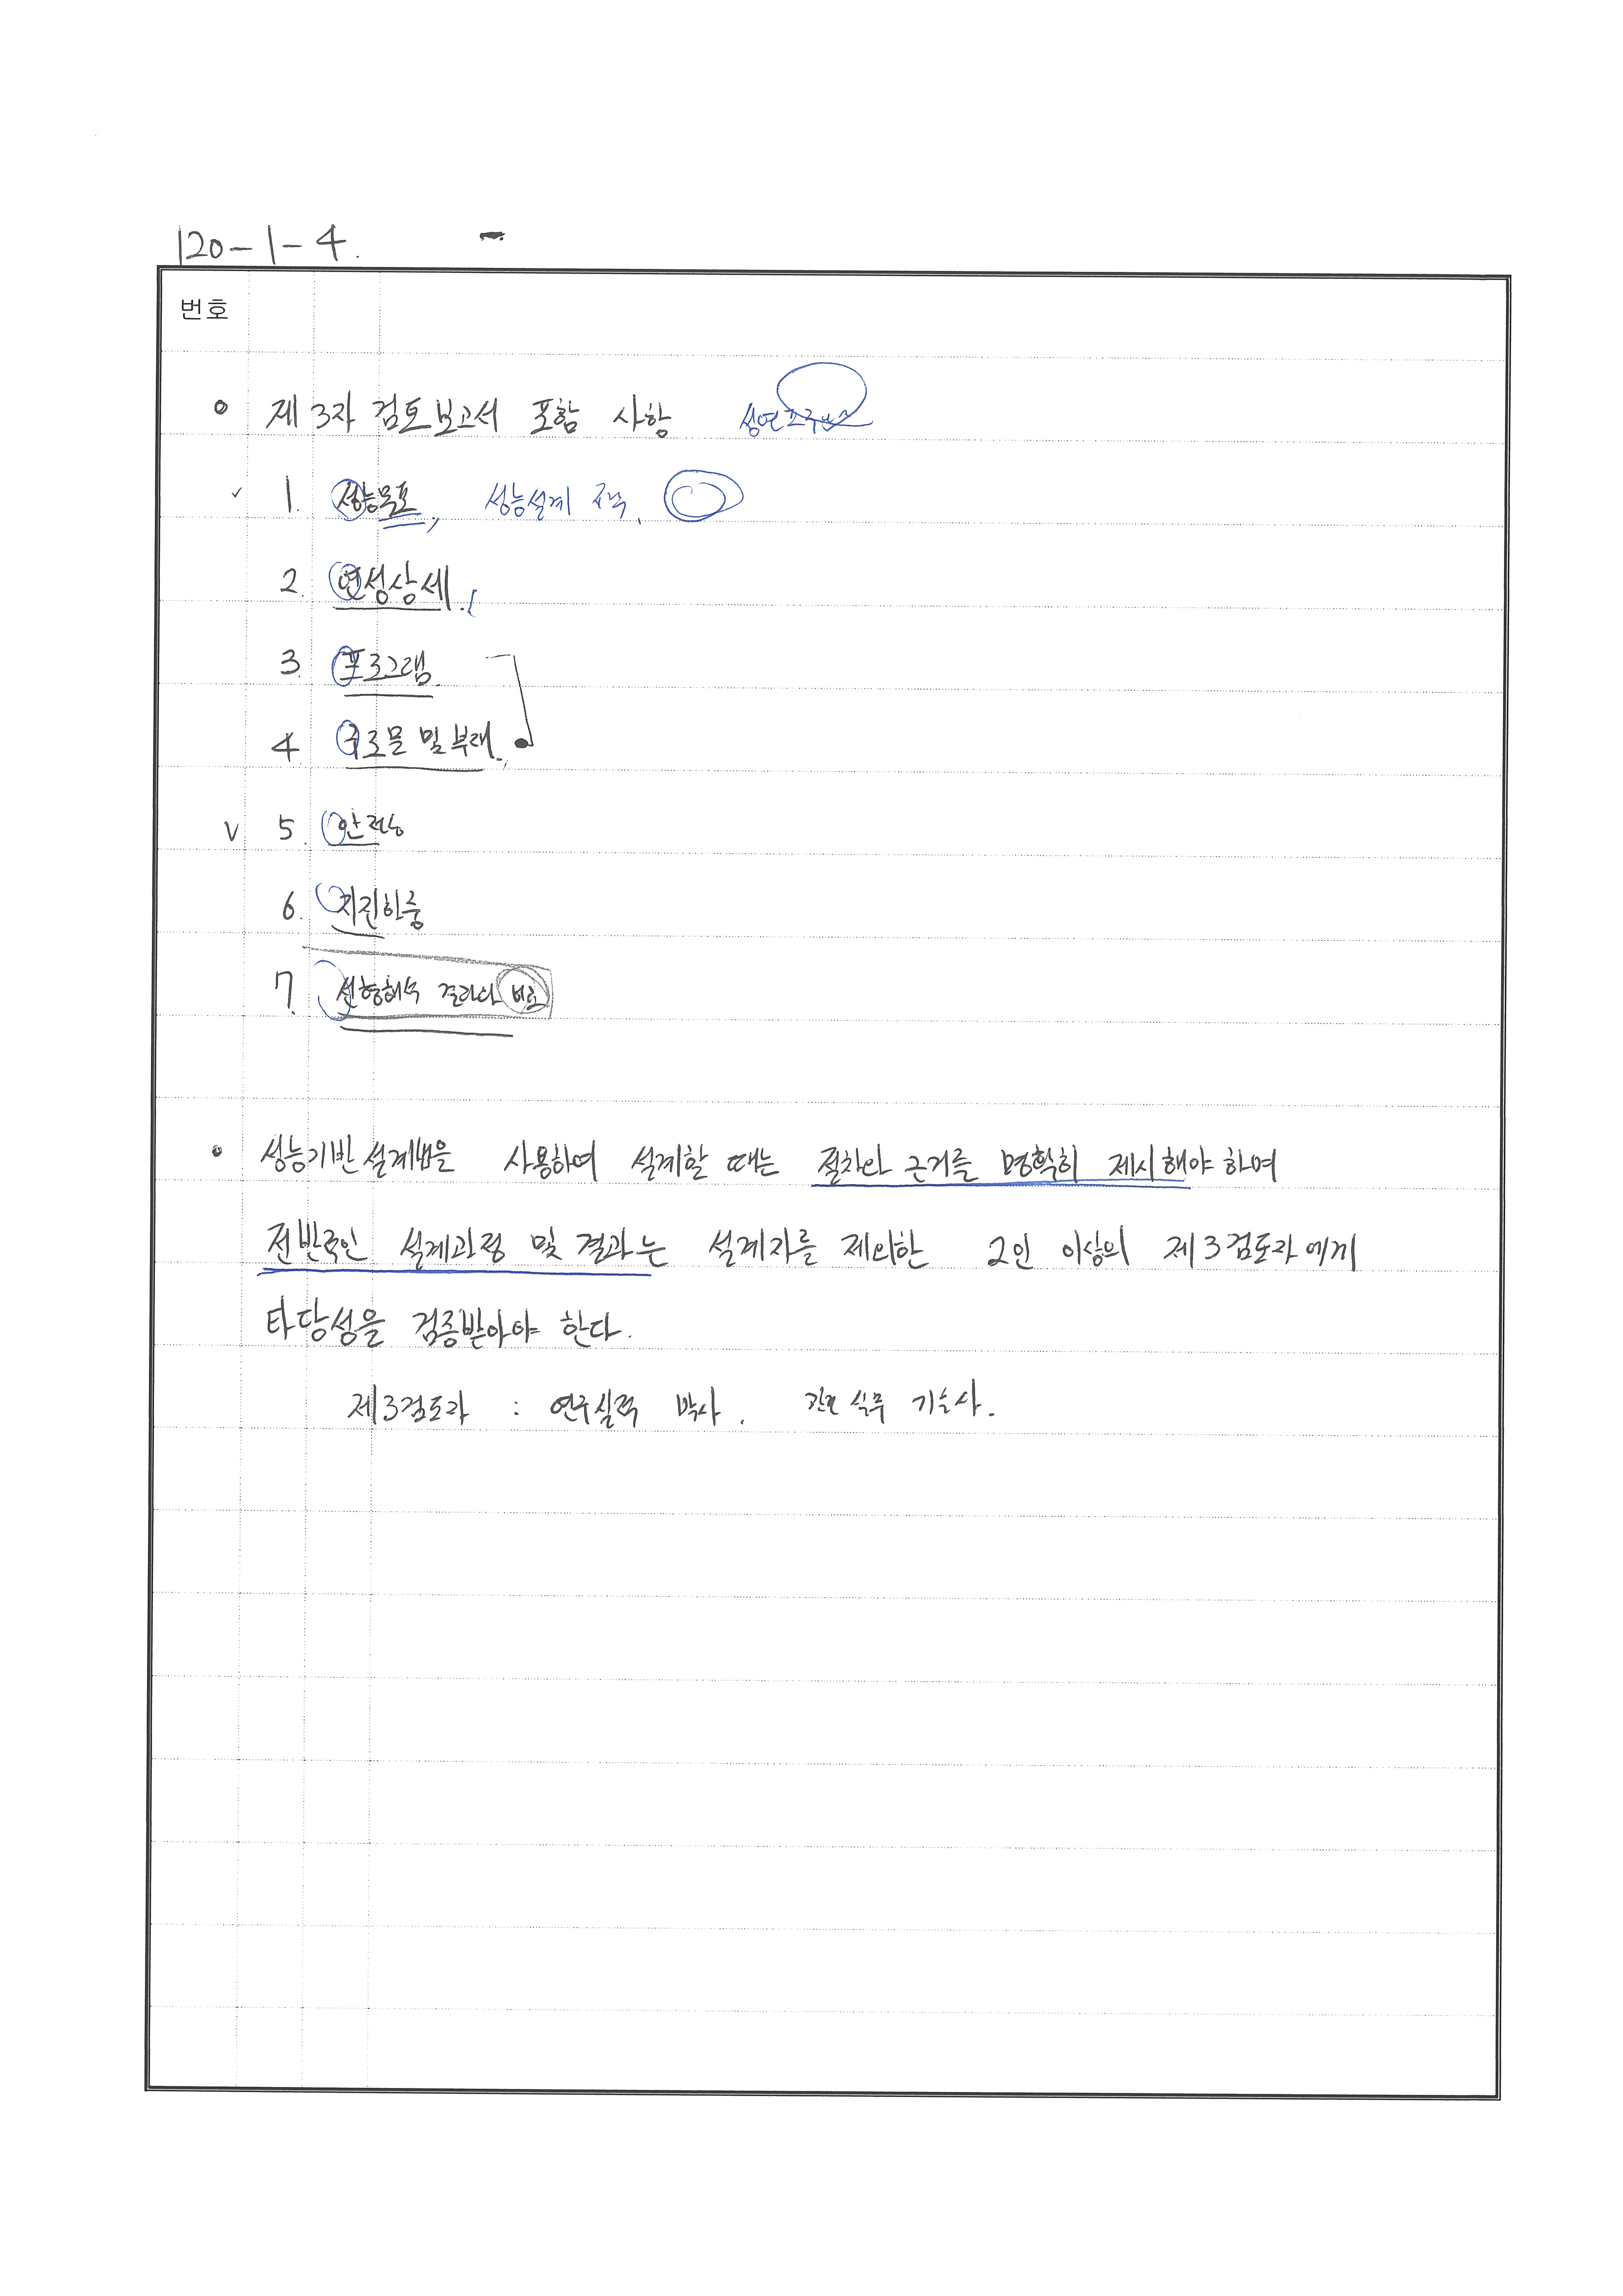 120-1-4.
번호
제3자 검토보고서 포함 사항 성연프구
1. 성능목표, 성능설계
2. 연성상세.
3. 프로그램.
4 구조물 및 부재.
V 5. 안전
6. 지진하중
7. 선형해석 결과와 비교
• 성능기반설계법을 사용하여 설계할 때는 절차와 근거를 명확히 제시해야하며
전반적인 설계과정 및 결과는 설계자를 제외한 2인 이상의 제3검토자에게
타당성을 검증받아야 한다.
제3검토자 : 연구실적 박사. 관련 실무 기술사.